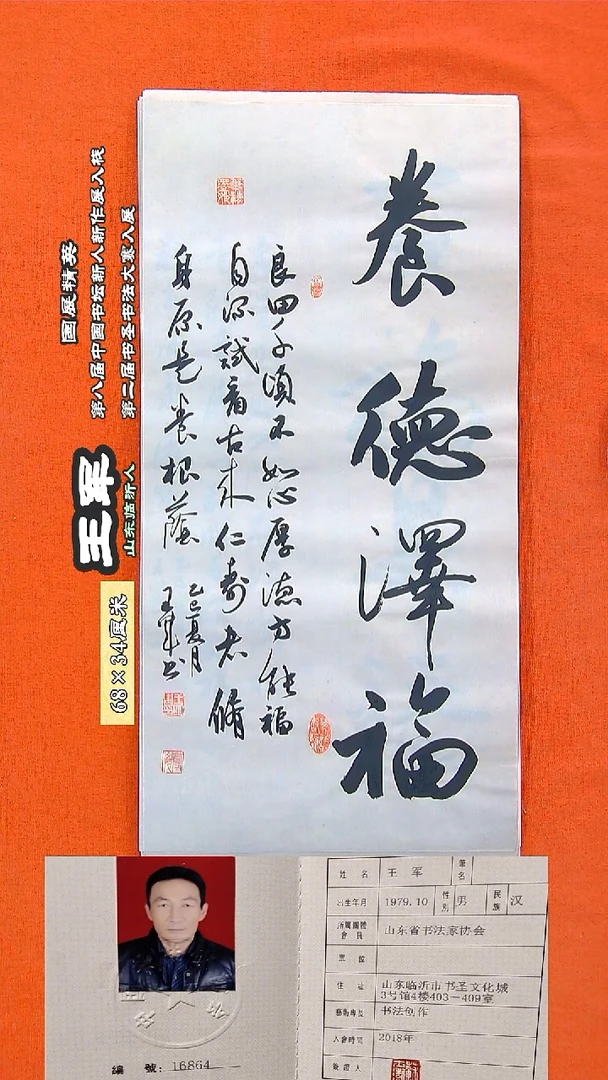 養德澤福
良田千頃不如心厚德方能福
自深試看古来仁壽者脩
身原是養根蔭
乙巳夏月
王军书
国展精英
第八届中国书坛新人新作展入展
第二届书圣书法大赛入展
王军
山东临沂人
68×34厘米
編 號: 16864
姓 名 王 军 筆名
出生年月 1979.10 性別 男 民族 汉
所屬團體會員 山东省书法家协会
住 址 山东临沂市书圣文化城
3号馆4楼403－409室
藝術專長 书法创作
入會時間 2018年
發證人